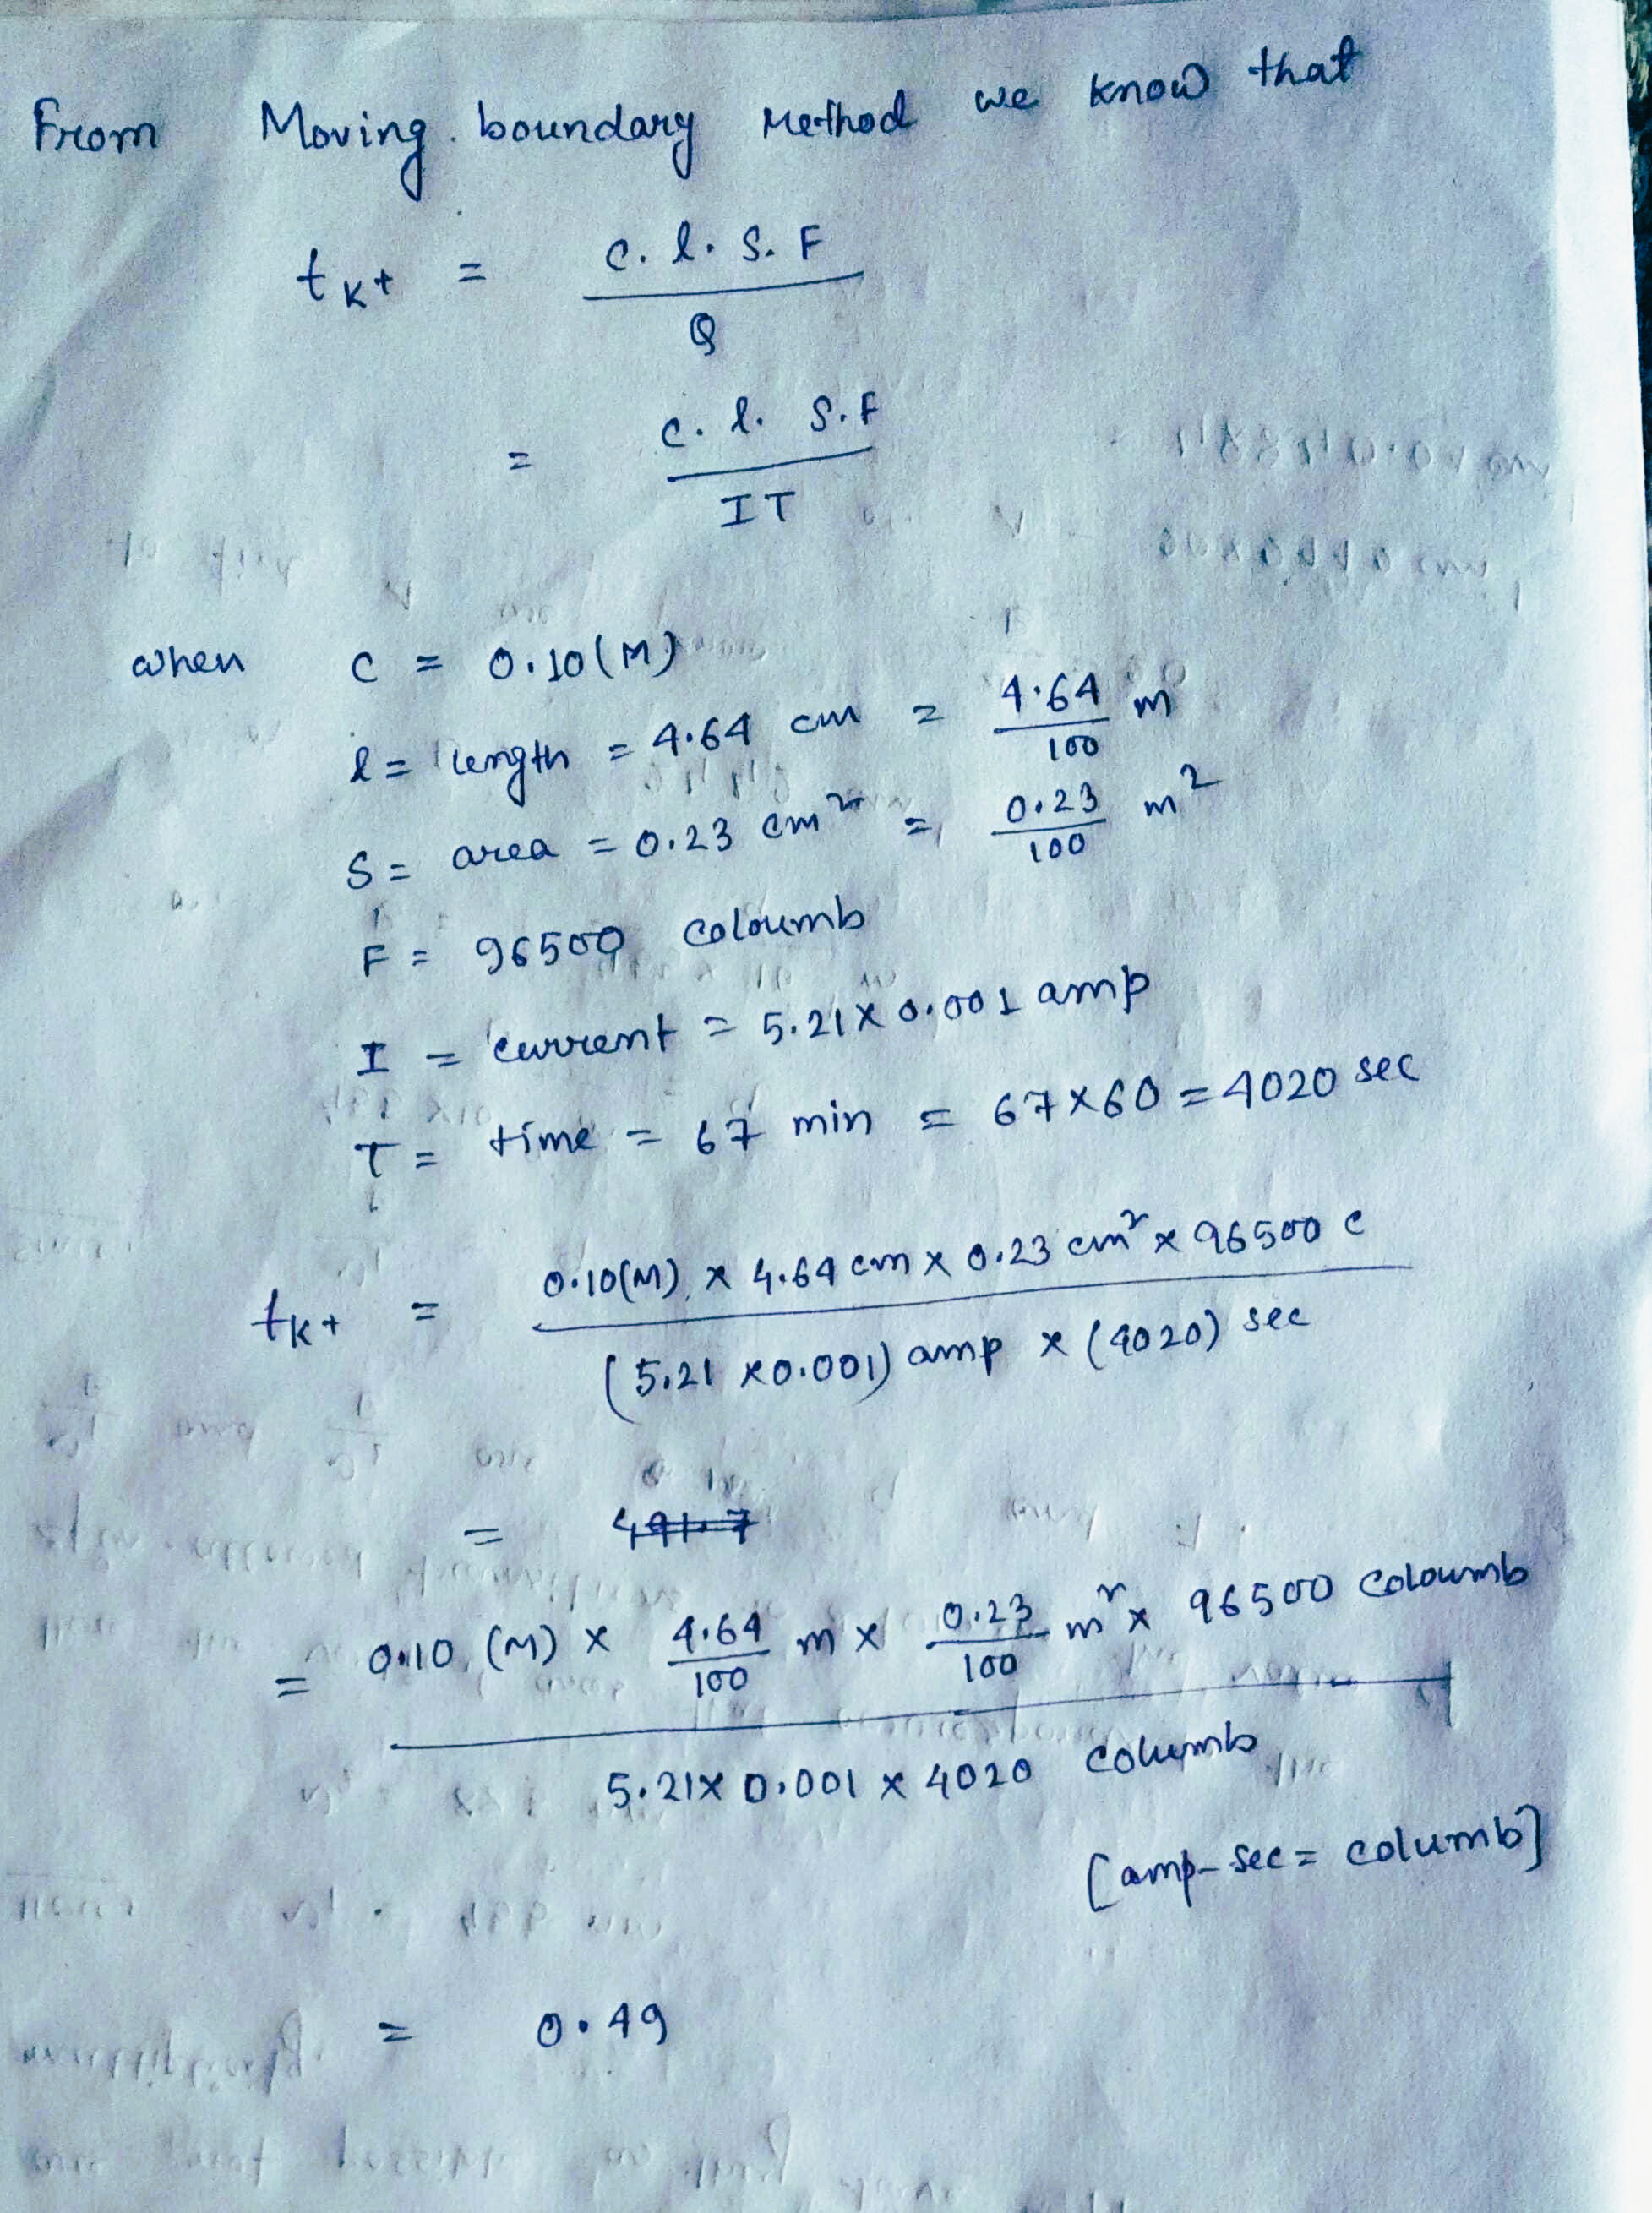 From Moving boundary Method we know that
t K+ = C. l. S. F / Q
= C. l. S. F / IT
when C = 0.10 (M)
l = length = 4.64 cm = 4.64/100 m
S = area = 0.23 cm² = 0.23/100 m²
F = 96500 coloumb
I = current = 5.21 x 0.001 amp
T = time = 67 min = 67 x 60 = 4020 sec
tK+ = 0.10(M) x 4.64 cm x 0.23 cm² x 96500 C / (5.21 x 0.001) amp x (4020) sec
= 491.7
= 0.10 (M) x 4.64/100 m x 0.23/100 m² x 96500 coloumb / 5.21 x 0.001 x 4020 columb
[amp-sec = columb]
= 0.49